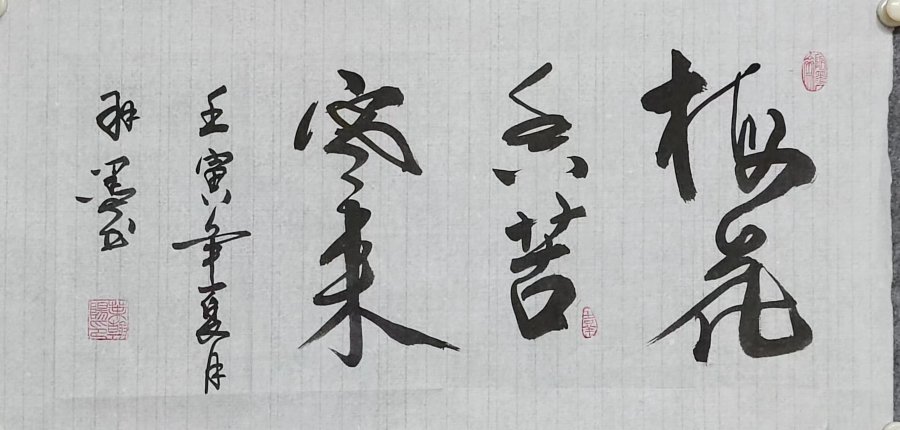 梅花
香苦
寒来
壬寅年夏月
墨书